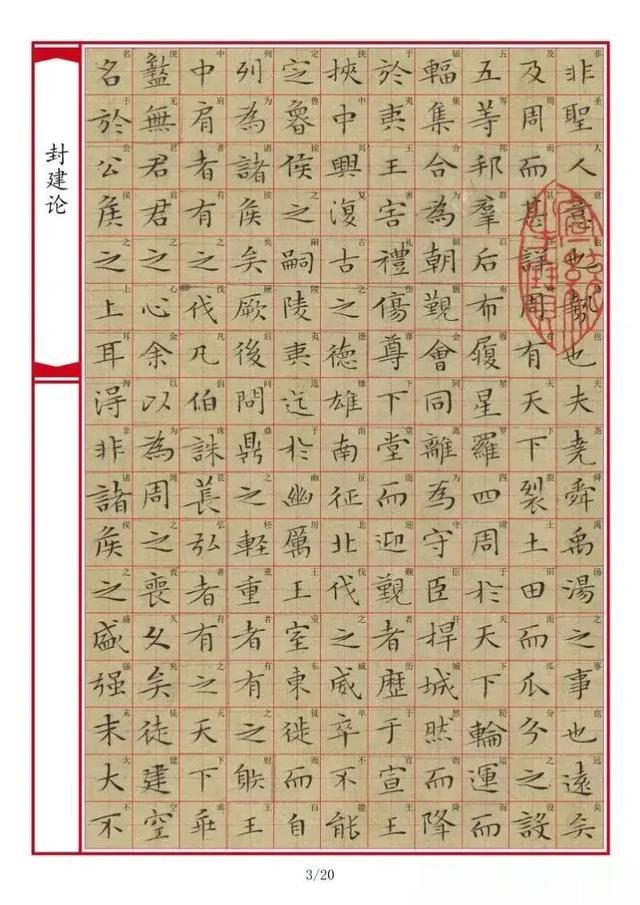 非聖人意也勢也夫堯舜禹湯之事也遠矣
及周而甚詳周有天下裂土田而瓜分之設
五等邦羣后布履星羅四周於天下輪運而
輻集合為朝覲會同離為守臣捍城然而降
於夷王害禮傷尊下堂而迎覲者歷于宣王
挾中興復古之德雄南征北伐之威卒不能
定魯侯之嗣陵夷迄於幽厲王室東徙而自
列為諸侯矣厥後問鼎之輕重者有之射王
中肩者有之伐凡伯誅萇弘者有之天下乖
盭無君君之心余以為周之喪久矣徒建空
名於公侯之上耳得非諸侯之盛强末大不
封建论
3/20